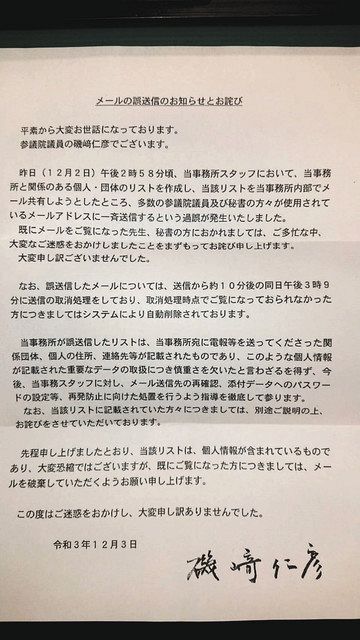 メールの誤送信のお知らせとお詫び
平素から大変お世話になっております。
参議院議員の磯﨑仁彦でございます。
昨日（１２月２日）午後２時５８分頃、当事務所スタッフにおいて、当事務
所と関係のある個人・団体のリストを作成し、当該リストを当事務所内部でメ
ール共有しようとしたところ、多数の参議院議員及び秘書の方々が使用されて
いるメールアドレスに一斉送信するという過誤が発生いたしました。
既にメールをご覧になった先生、秘書の方におかれましては、ご多忙な中、
大変なご迷惑をおかけしましたことをまずもってお詫び申し上げます。
大変申し訳ございませんでした。
なお、誤送信したメールについては、送信から約１０分後の同日午後３時９
分に送信の取消処理をしており、取消処理時点でご覧になっておられなかった
方につきましてはシステムにより自動削除されております。
当事務所が誤送信したリストは、当事務所宛に電報等を送ってくださった関
係団体、個人の住所、連絡先等が記載されたものであり、このような個人情報
が記載された重要なデータの取扱につき慎重さを欠いたと言わざるを得ず、今
後、当事務所スタッフに対し、メール送信先の再確認、添付データへのパスワー
ドの設定等、再発防止に向けた処置を行うよう指導を徹底して参ります。
なお、当該リストに記載されていた方々につきましては、別途ご説明の上、
お詫びをさせていただいております。
先程申し上げましたとおり、当該リストは、個人情報が含まれているもので
あり、大変恐縮ではございますが、既にご覧になった方につきましては、メー
ルを破棄していただくようお願い申し上げます。
この度はご迷惑をおかけし、大変申し訳ありませんでした。
令和３年１２月３日
磯﨑仁彦